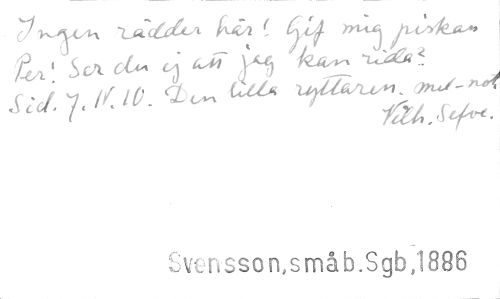 Ingen rädder här! Gif mig piskan
Per! Ser du ej att jag kan rida?
Sid. 7. N. 10. Den lilla ryttaren. mel-not.
Vilh. Sefve.
Svensson,småb.Sgb,1886